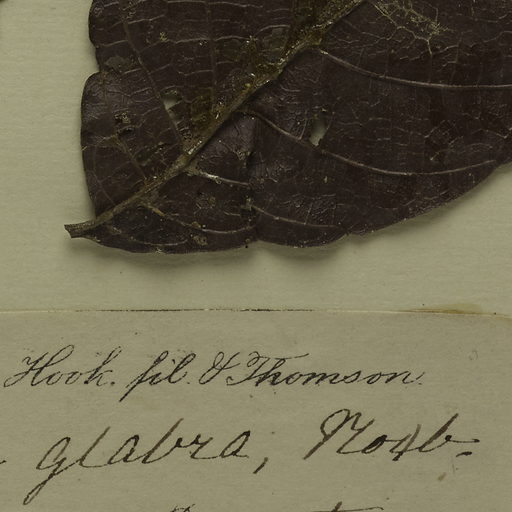 Hook. fil. & Thomson.
glabra, Roxb.